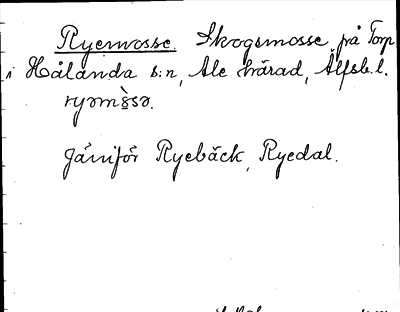 Ryemosse. Skogsmosse på Torp
i Hålanda s:n, Ale härad, Älfsb. l.
ryəmòsə.
Jämför Ryebäck, Ryedal.